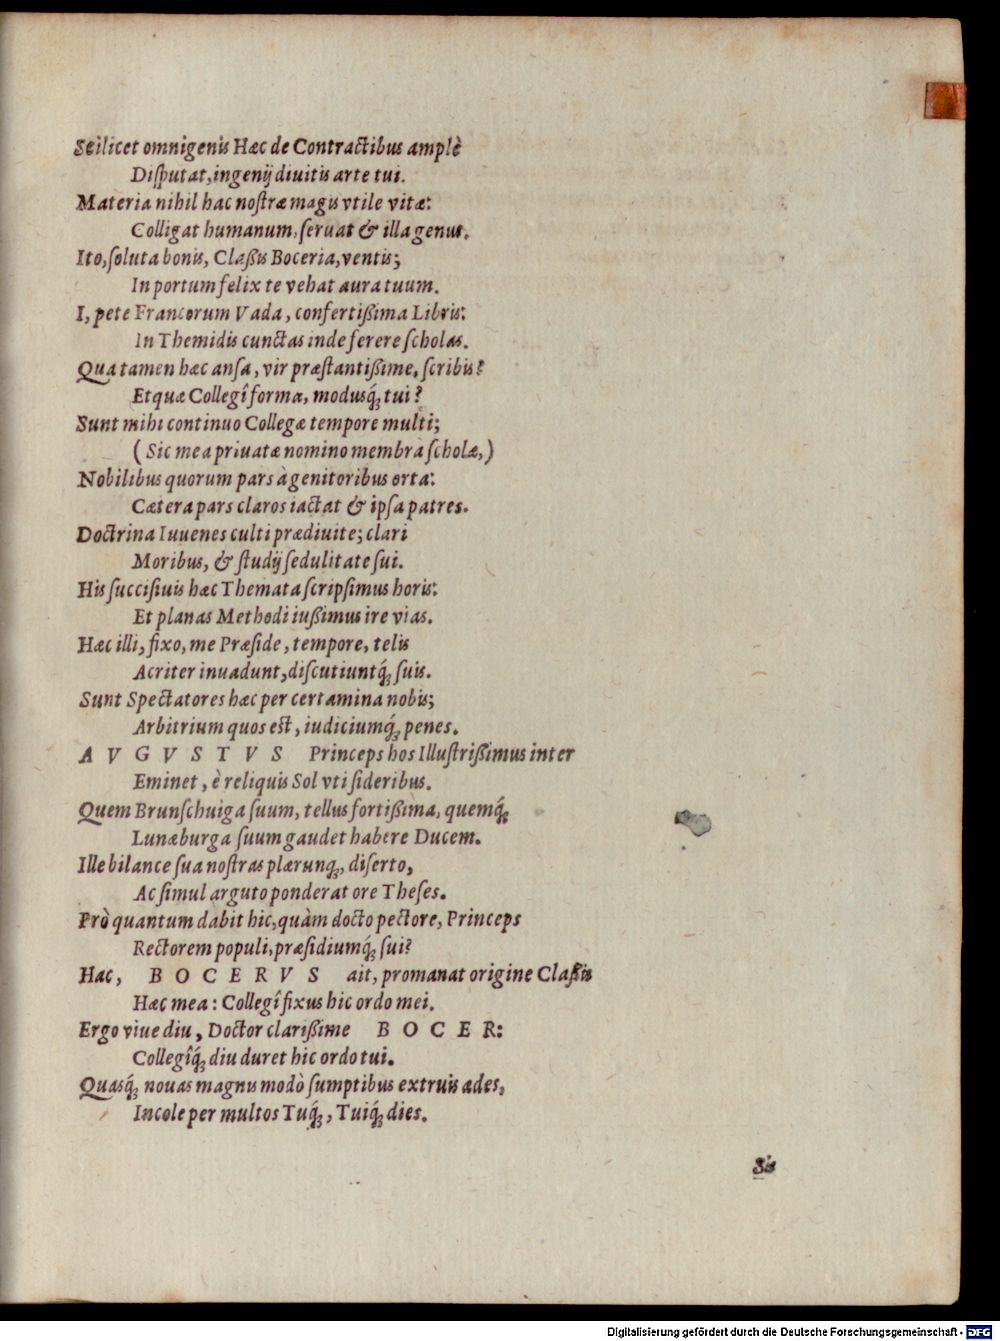 Scilicet omnigenis Hæc de Contractibus amplè
Diſputat, ingenij diuitis arte tui.
Materia nihil hac noſtræ magis vtile vitæ:
Colligat humanum, ſeruat & illa genus.
Ito, ſoluta bonis, Claßis Boceria, ventis;
In portum felix te vehat aura tuum.
I, pete Francorum Vada, confertißima Libris:
In Themidis cunctas inde ferere ſcholas.
Qua tamen hæc anſa, vir præſtantißime, ſcribis?
Et quæ Collegî forma, modusq́; tui?
Sunt mihi continuo Collegæ tempore multi;
(Sic mea priuatæ nomino membra ſcholæ,)
Nobilibus quorum pars à genitoribus orta:
Cætera pars claros iactat & ipſa patres.
Doctrina Iuuenes culti prædiuite; clari
Moribus, & ſtudij ſedulitate ſui.
His ſucciſiuis hæc Themata ſcripſimus horis:
Et planas Methodi iußimus ire vias.
Hæc illi, fixo, me Præſide, tempore, telis
Acriter inuadunt, diſcutiuntq́; ſuis.
Sunt Spectatores hæc per certamina nobis;
Arbitrium quos eſt, iudiciumq́; penes.
AVGVSTVS Princeps hos Illuſtrißimus inter
Eminet, è reliquis Sol vti ſideribus.
Quem Brunſchuiga ſuum, tellus fortißima, quemq́;
Lunæburga ſuum gaudet habere Ducem.
Ille bilance ſua noſtras plærunq;, diſerto,
Ac ſimul arguto ponderat ore Theſes.
Prò quantum dabit hic, quàm docto pectore, Princeps
Rectorem populi, præſidiumq́; ſui?
Hac, BOCERVS ait, promanat origine Claßis
Hæc mea: Collegî fixus hic ordo mei.
Ergo viue diu, Doctor clarißime BOCER:
Collegîq́; diu duret hic ordo tui.
Quasq́; nouas magnis modò ſumptibus extruis ædes,
Incole per multos Tuq́;, Tuiq́; dies.
Sis
Digitalisierung gefördert durch die Deutsche Forschungsgemeinschaft - DFG